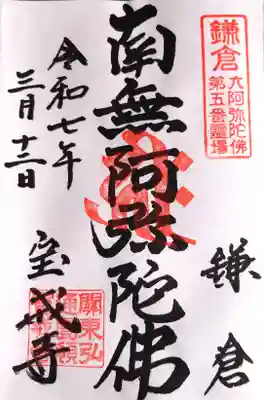 鎌倉
六阿弥陀佛
第五番霊場
鎌倉
南無阿弥陀佛
令和七年
三月十二日
宝戒寺